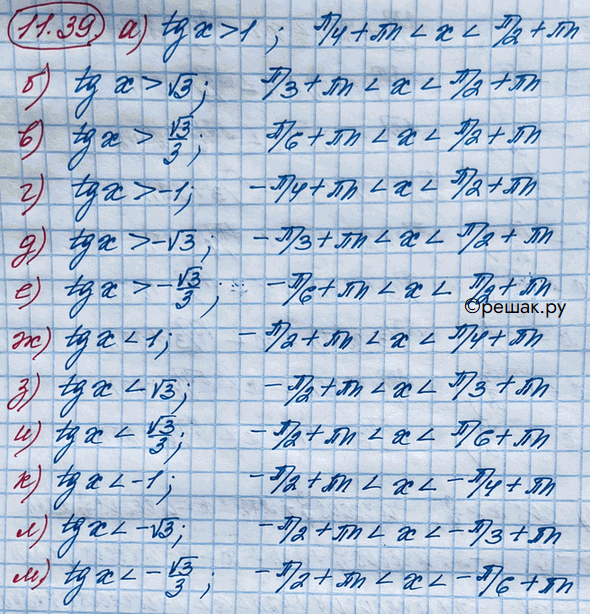 11.39. а) tg x > 1 ; π/4 + πn < x < π/2 + πn
б) tg x > √3 ; π/3 + πn < x < π/2 + πn
в) tg x > √3/3 ; π/6 + πn < x < π/2 + πn
г) tg x > -1 ; -π/4 + πn < x < π/2 + πn
д) tg x > -√3 ; -π/3 + πn < x < π/2 + πn
е) tg x > -√3/3 ; -π/6 + πn < x < π/2 + πn
©решак.ру
ж) tg x < 1 ; -π/2 + πn < x < π/4 + πn
з) tg x < √3 ; -π/2 + πn < x < π/3 + πn
и) tg x < √3/3 ; -π/2 + πn < x < π/6 + πn
к) tg x < -1 ; -π/2 + πn < x < -π/4 + πn
л) tg x < -√3 ; -π/2 + πn < x < -π/3 + πn
м) tg x < -√3/3 ; -π/2 + πn < x < -π/6 + πn